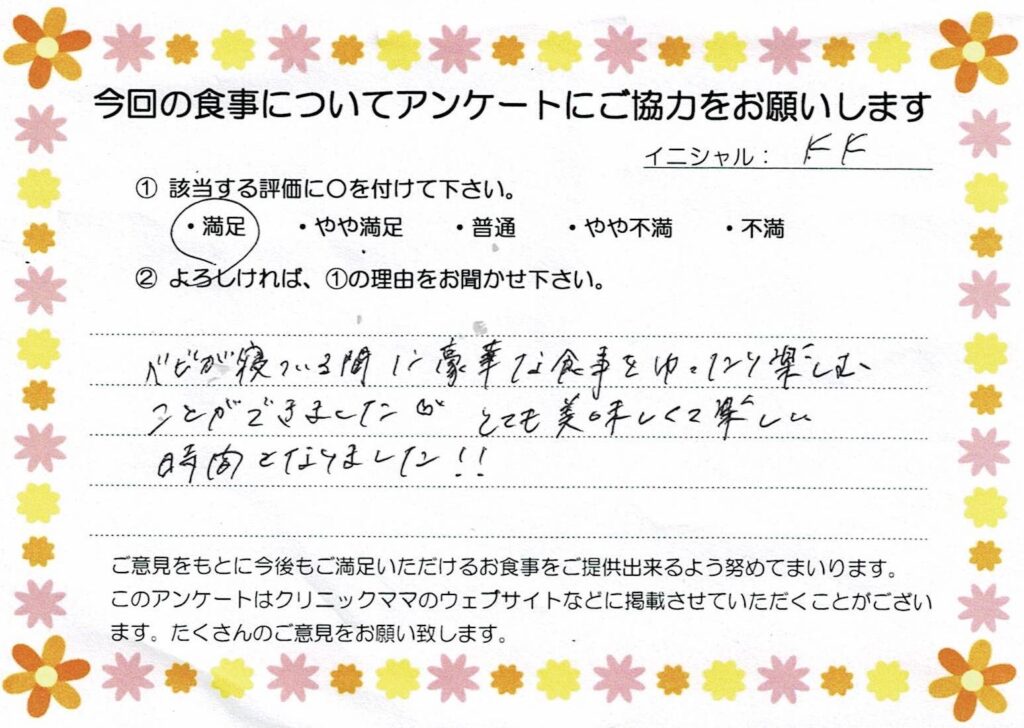 今回の食事についてアンケートにご協力をお願いします
イニシャル： KK
① 該当する評価に〇を付けて下さい。
・満足 ・やや満足 ・普通 ・やや不満 ・不満
② よろしければ、①の理由をお聞かせ下さい。
ベビが寝ている間に豪華な食事をゆったり楽しむ
ことができました とても美味しくて楽しい
時間となりました!!
ご意見をもとに今後もご満足いただけるお食事をご提供出来るよう努めてまいります。
このアンケートはクリニックママのウェブサイトなどに掲載させていただくことがござい
ます。たくさんのご意見をお願い致します。